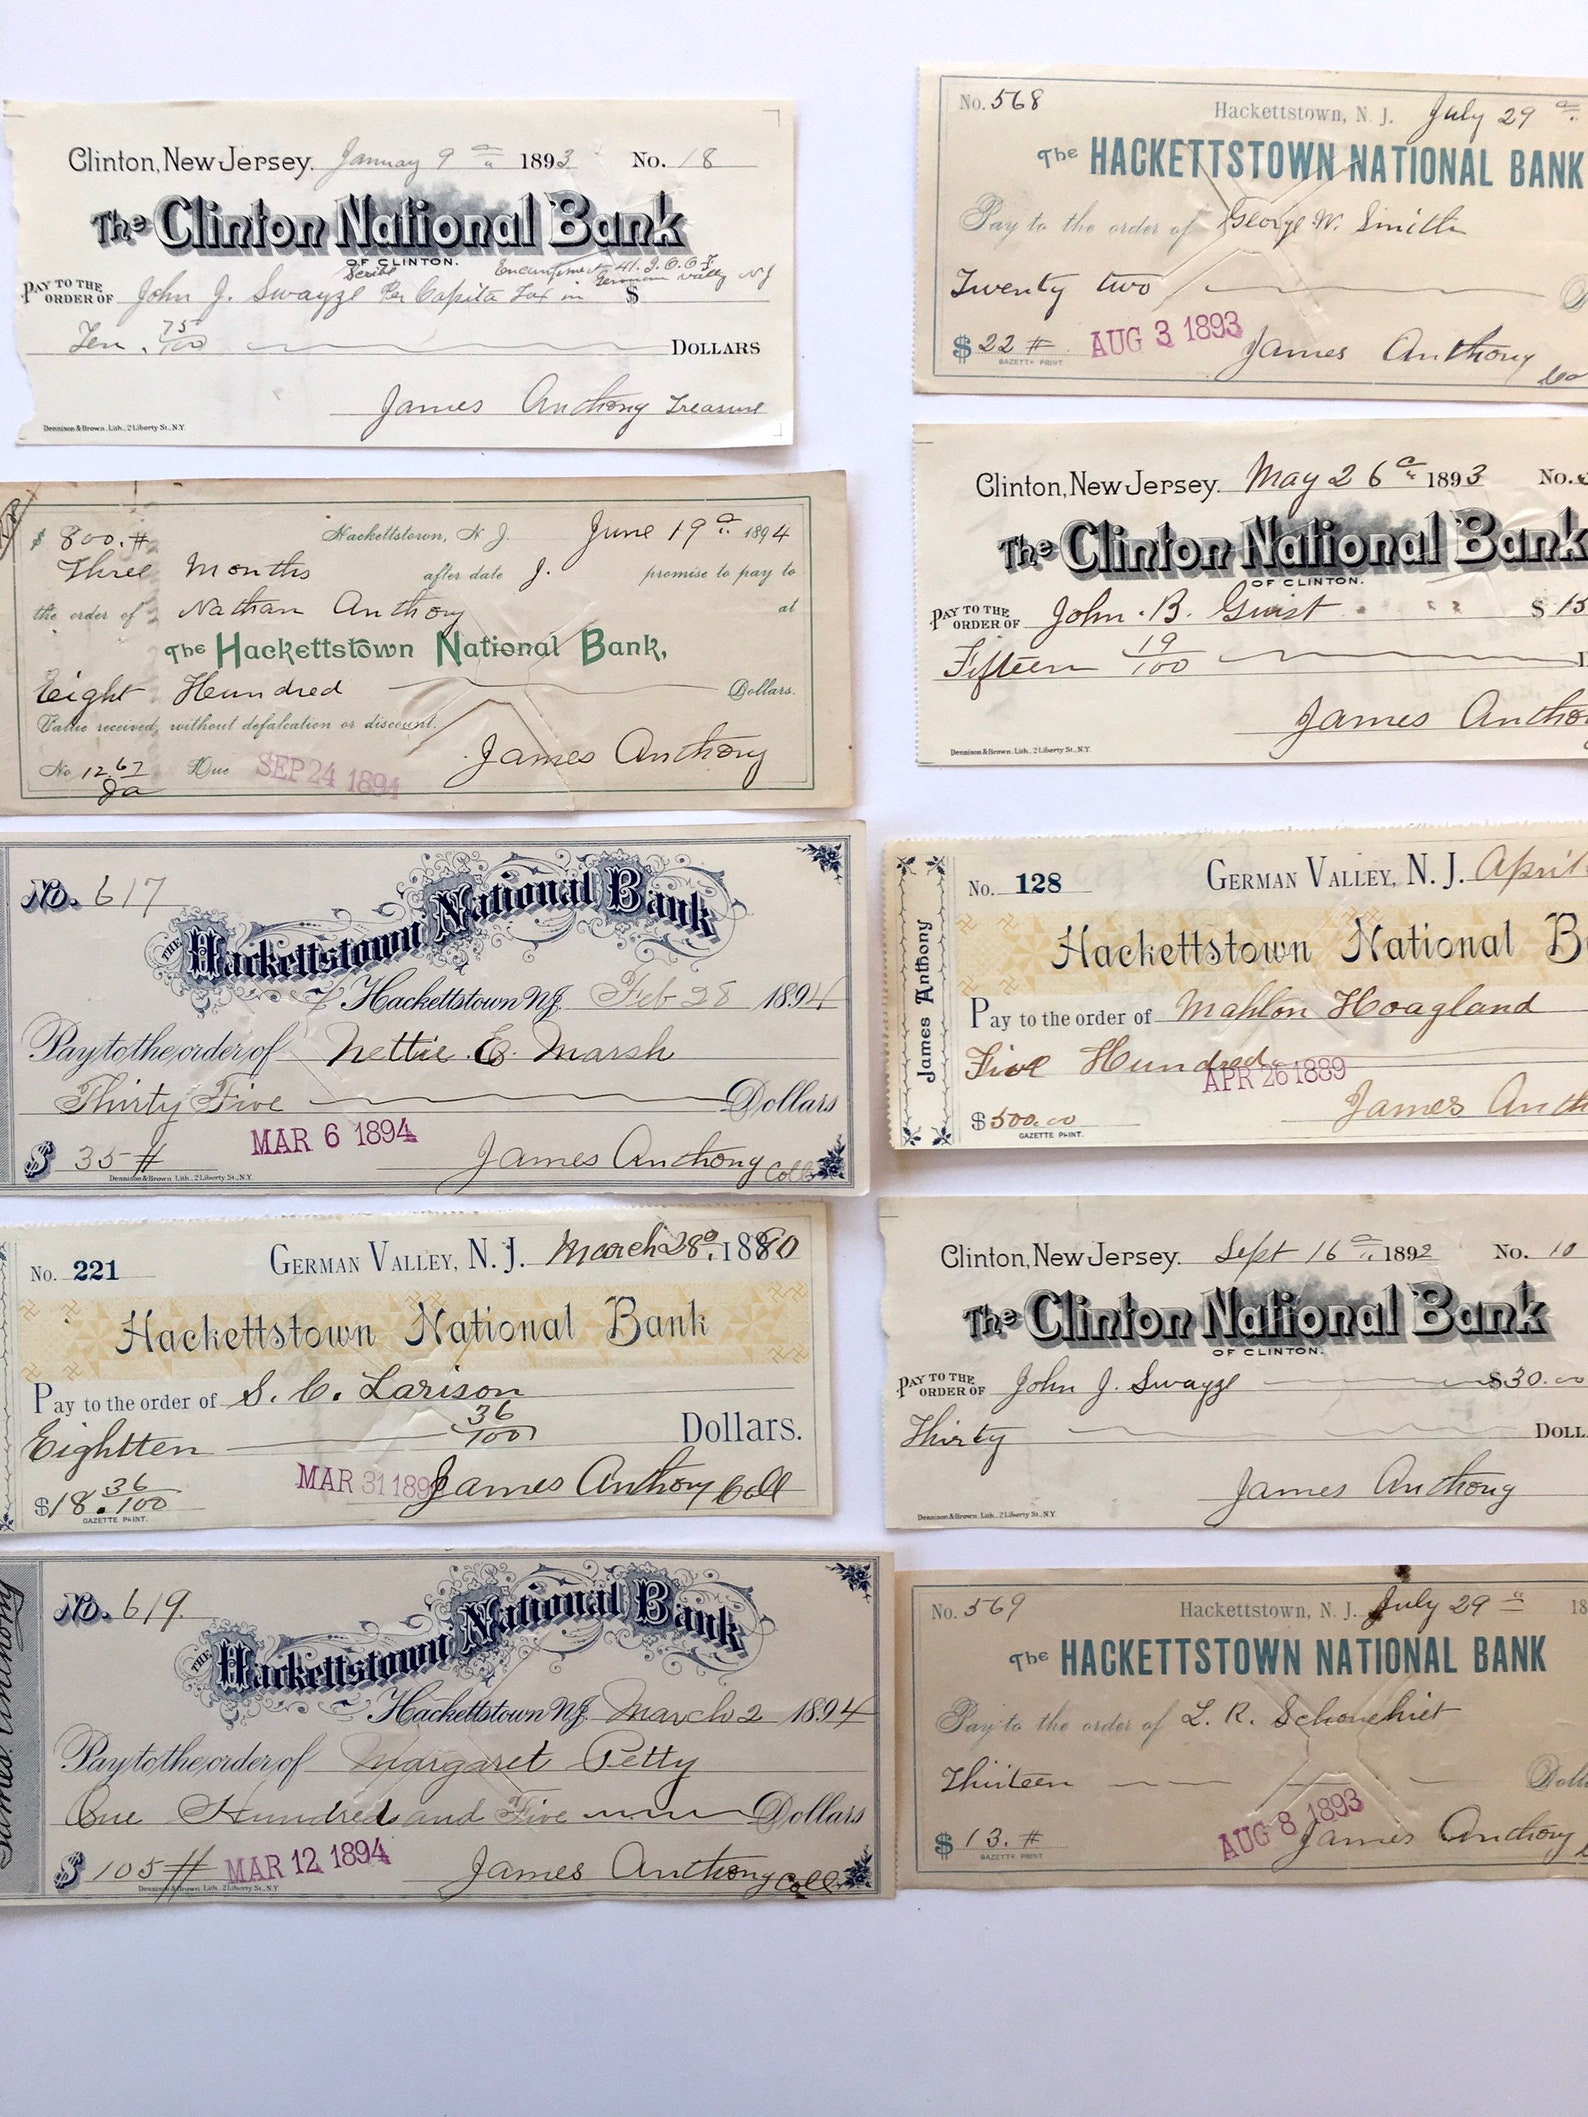 Clinton, New Jersey. January 9 1893 No. 18
The Clinton National Bank
OF CLINTON.
Scribe Encampment 41. I.O.O.F
PAY TO THE ORDER OF John J. Swayze Per Capita Tax in German Valley N J $
Ten . 75/100 DOLLARS
James Anthony Treasure
Dennison & Brown. Lith., 2 Liberty St., N.Y.
$ 800.# Hackettstown, N. J. June 19 1894
Three Months after date J. promise to pay to
the order of Nathan Anthony at
The Hackettstown National Bank,
Eight Hundred Dollars.
Value received, without defalcation or discount.
No 1267 Due SEP 24 1894 James Anthony
No. 617
THE Hackettstown National Bank
Hackettstown N.J. Feb 28 1894
Pay to the order of Nettie E. Marsh
Thirty Five Dollars
MAR 6 1894
$ 35 # James Anthony Coll
Dennison & Brown Lith., 2 Liberty St., N.Y.
No. 221 GERMAN VALLEY, N. J. March 28 1880
Hackettstown National Bank
Pay to the order of S. C. Larison
Eightten 36/100 Dollars.
MAR 31 189
$ 18. 36/100 James Anthony Coll
GAZETTE PRINT.
James Anthony
No. 619.
THE Hackettstown National Bank
Hackettstown N.J. March 2 1894
Pay to the order of Margaret Petty
One Hundred and Five Dollars
$ 105 # MAR 12 1894 James Anthony Coll
Dennison & Brown Lith. 2 Liberty St., N.Y.
No. 568 Hackettstown, N. J. July 29
The HACKETTSTOWN NATIONAL BANK
Pay to the order of George W. Smith
Twenty two
$ 22 # AUG 3 1893 James Anthony
GAZETTE PRINT
Clinton, New Jersey. May 26 1893 No.
The Clinton National Bank
OF CLINTON.
PAY TO THE ORDER OF John B. Guist $ 15
Fifteen 19/100
James Antho
Dennison & Brown. Lith., 2 Liberty St., N.Y.
James Anthony
No. 128 GERMAN VALLEY, N. J. April
Hackettstown National B
Pay to the order of Mahlon Hoagland
Five Hundred
APR 26 1889
$ 500.00 James Anth
GAZETTE PRINT.
Clinton, New Jersey. Sept 16 1892 No. 10
The Clinton National Bank
OF CLINTON.
PAY TO THE ORDER OF John J. Swayze $30.00
Thirty DOLL
James Anthony
Dennison & Brown. Lith., 2 Liberty St., N.Y.
No. 569 Hackettstown, N. J. July 29 18
The HACKETTSTOWN NATIONAL BANK
Pay to the order of L. R. Schouehiet
Thirteen Doll
$ 13. # AUG 8 1893 James Anthony
GAZETTE PRINT